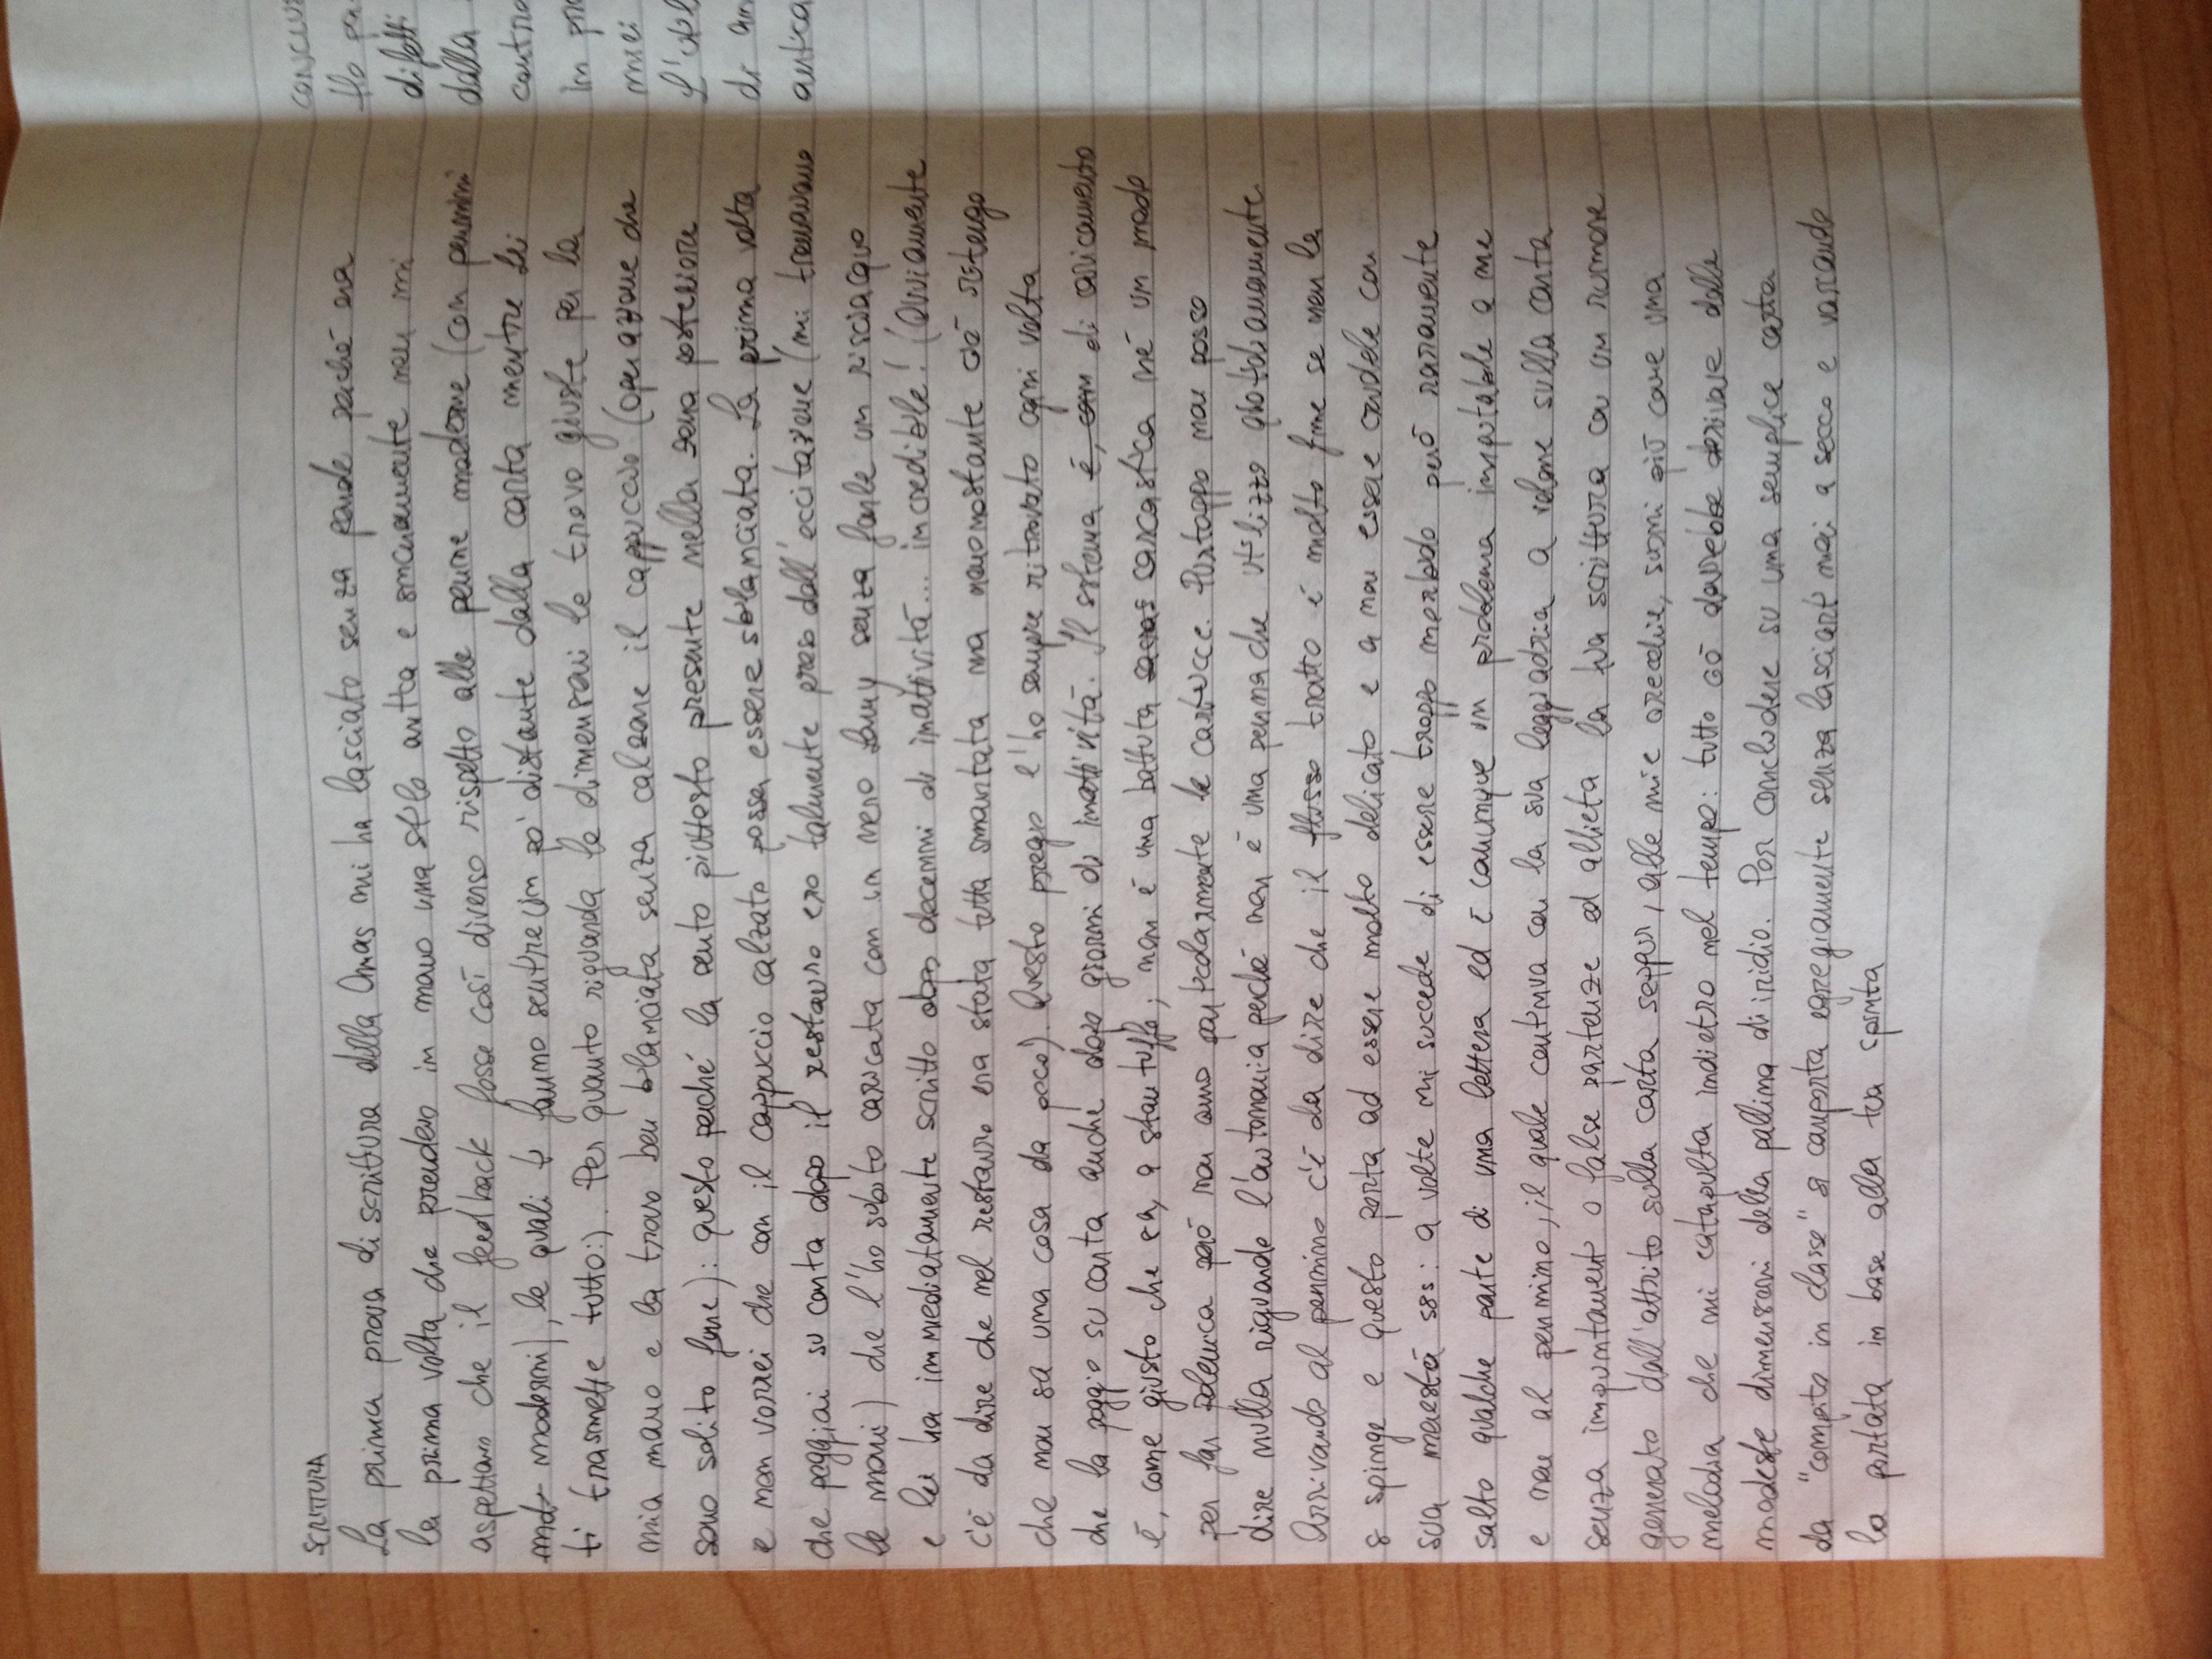 SCRITTURA
La prima prova di scrittura della Omas mi ha lasciato senza parole perché era
la prima volta che prendevo in mano una stilo antica e sinceramente non mi
aspettavo che il feedback fosse così diverso rispetto alle penne moderne (con pennini
mod moderni), le quali ti fanno sentire un pò distante dalla carta mentre lei
ti trasmette tutto:). Per quanto riguarda le dimensioni le trovo giuste per la
mia mano e la trovo ben bilanciata senza calzare il cappuccio (operazione che
sono solito fare): questo perché la sento piuttosto presente nella zona posteriore
e non vorrei che con il cappuccio calzato possa essere sbilanciata. La prima volta
che poggiai su carta dopo il restauro ero talmente preso dall'eccitazione (mi tremavano
le mani) che l'ho subito caricata con un nero Lamy senza farle un risciacquo
e lei ha immediatamente scritto dopo decenni di inattività... incredibile! (Ovviamente
c'è da dire che nel restauro era stata tutta smontata ma nonostante ciò ritengo
che non sia una cosa da poco). Questo pregio l'ho sempre ritrovato ogni volta
che la poggio su carta anche dopo giorni di inattività. Il sistema é, com di caricamento
è, come giusto che sia, a stantuffo; non é una battuta sarcas sarcastica né un modo
per far polemica però non amo particolarmente le cartucce. Purtroppo non posso
dire nulla riguardo l'autonomia perché non è una penna che utilizzo quotidianamente.
Arrivando al pennino c'è da dire che il flusso tratto è molto fine se non la
si spinge e questo porta ad essere molto delicato e a non essere crudele con
sua maestà 585: a volte mi succede di essere troppo morbido però raramente
salto qualche parte di una lettera ed è comunque un problema imputabile a me
e non al pennino, il quale continua con la sua leggiadria a ridare sulla carta
senza impuntamenti o false partenze ed allieta la tua scrittura con un rumore
generato dall'attrito sulla carta seppur, alle mie orecchie, suoni più come una
melodia che mi catapulta indietro nel tempo: tutto ciò dovrebbe derivare dalle
modeste dimensioni della pallina di iridio. Per concludere su una semplice carta
da "compito in classe" si comporta egregiamente senza lasciarti mai a secco e variando
la portata in base alla tua spinta
conclus
Ho
difetti
dalla
contro
in pr
miei
L'util
di an
antica